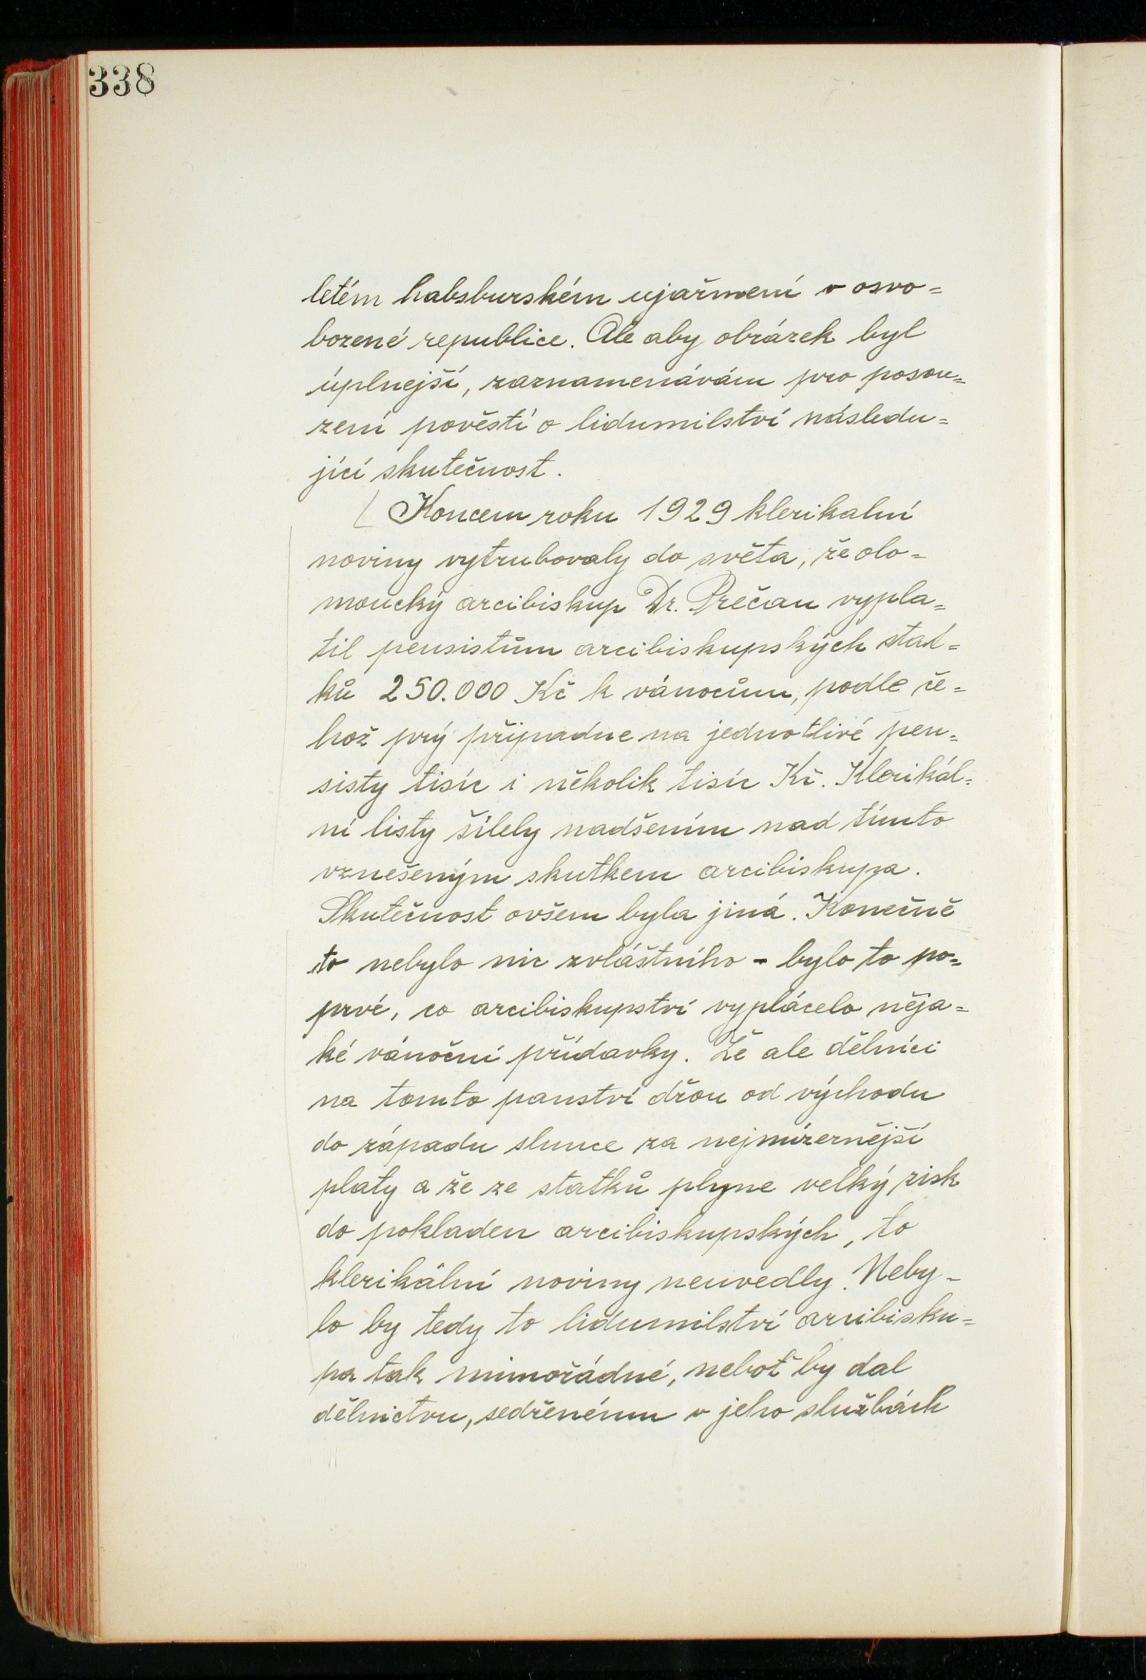 338
letém habsburském ujařmení v osvo=
bozené republice. Ale aby obrázek byl
úplnejší, zaznamenávám pro posou=
zení pověstí o lidumilství násLedu=
jící skutečnost.
Koncem roku 1929 klerikalní
noviny vytrubovaly do světa, že olo=
moucký arcibiskup Dr. Prečan vypla=
til pensistům arcibiskupských stat=
ků 250.000 Kč k vánocům, podle če=
hož prý připadne na jednotlivé pen=
sisty tisíc i několik tisíc Kč. Klerikál=
ní listy šílely nadšením nad tímto
vznešeným skutkem arcibiskupa.
Skutečnost ovšem byla jiná. Konečně
to nebylo nic zvláštního - bylo to po=
prvé, co arcibiskupství vyplácelo něja=
ké vánoční přídavky. Že ale dělníci
na tomto panství dřou od východu
do západu slunce za nejmizernější
platy a že ze statků plyne velký zisk
do pokladen arcibiskupských, to
klerikální noviny neuvedly. Neby-
lo by tedy to lidumilství arcibisku=
pa tak mimořádné, neboť by dal
dělnictvu, sedřenému v jeho službách